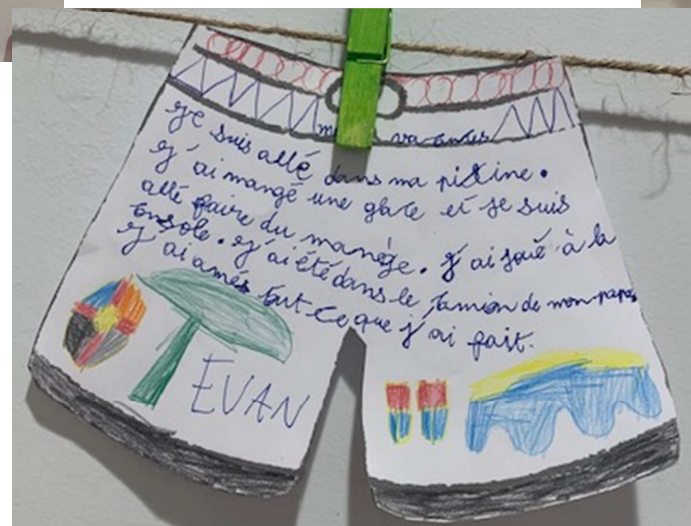 mes vacances
Je suis allé dans ma piscine.
J'ai mangé une glace et je suis
allé faire du manège. J'ai joué à la
console. J'ai été dans le camion de mon papa
J'ai amés tout ce que j'ai fait.
EVAN